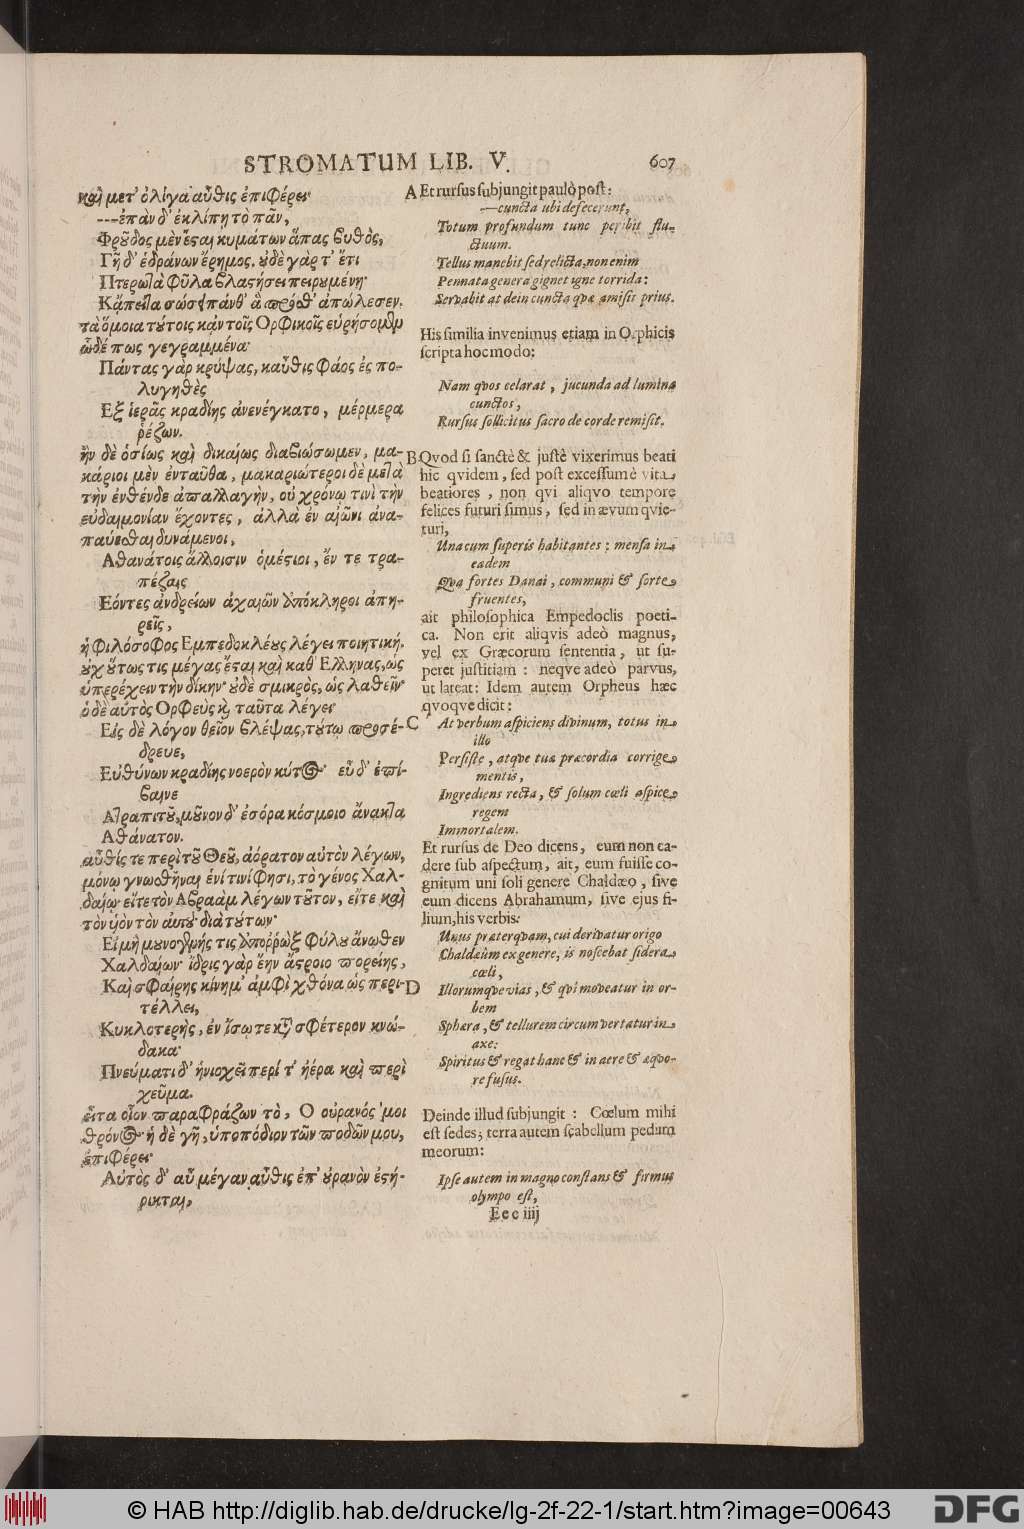 STROMATUM LIB. V. 607
καὶ μετ' ὀλίγα αὖθις ἐπιφέρει·
---ἐπὰν δ' ἐκλίπῃ τὸ πᾶν,
Φροῦδος μὲν ἔσται κυμάτων ἅπας βυθὸς,
Γῆ δ' ἑδράνων ἔρημος. οὐδὲ γάρ τ' ἔτι
Πτερωτὰ φῦλα βλαστήσει πειρουμένη·
Κἄπειτα σώσει πάνθ' ἃ πρόσθ' ἀπώλεσεν.
τὰ ὅμοια τούτοις κἀν τοῖς Ορφικοῖς εὑρήσομεν
ὧδέ πως γεγραμμένα·
Πάντας γὰρ κρύψας, καὖθις φάος ἐς πο-
λυγηθὲς
Εξ ἱερᾶς κραδίης ἀνενέγκατο, μέρμερα
ῥέζων.
ἢν δὲ ὁσίως καὶ δικαίως διαβιώσωμεν, μα-
κάριοι μὲν ἐνταῦθα, μακαριώτεροι δὲ μετὰ
τὴν ἐνθένδε ἀπαλλαγήν, οὐ χρόνῳ τινὶ τὴν
εὐδαιμονίαν ἔχοντες, ἀλλὰ ἐν αἰῶνι ἀνα-
παύεσθαι δυνάμενοι,
Αθανάτοις ἄλλοισιν ὁμέστιοι, ἔν τε τρα-
πέζαις
Εόντες ἀνδρείων ἀχαιῶν ἀπόκληροι ἀπη-
ρεῖς,
ἡ φιλόσοφος Εμπεδοκλέους λέγει ποιητική.
οὐχ οὕτως τις μέγας ἔσται καὶ καθ' Ελληνας, ὡς
ὑπερέχειν τὴν δίκην· οὐδὲ σμικρὸς, ὡς λαθεῖν·
ὁ δὲ αὐτὸς Ορφεὺς καὶ ταῦτα λέγει·
Εἰς δὲ λόγον θεῖον βλέψας, τούτῳ προσέ-
δρευε,
Εὐθύνων κραδίης νοερὸν κύτος· εὖ δ' ἐπί-
βαινε
Ατραπιτοῦ, μοῦνον δ' ἐσόρα κόσμοιο ἄνακτα
Αθάνατον.
αὖθίς τε περὶ τοῦ Θεοῦ, ἀόρατον αὐτὸν λέγων,
μόνῳ γνωσθῆναι ἑνί τινί φησι, τὸ γένος Χαλ-
δαίῳ· εἴτε τὸν Αβραὰμ λέγων τοῦτον, εἴτε καὶ
τὸν υἱὸν τὸν αὐτοῦ διὰ τούτων·
Εἰ μὴ μουνογενής τις ἀπορρὼξ φύλου ἄνωθεν
Χαλδαίων· ἴδρις γὰρ ἔην ἄστροιο πορείης,
Καὶ σφαίρης κίνημ' ἀμφὶ χθόνα ὡς περι-
τέλλει,
Κυκλοτερὴς, ἐν ἴσῳ τε κατὰ σφέτερον κνώ-
δακα·
Πνεύματι δ' ἡνιοχεῖ περί τ' ἠέρα καὶ περὶ
χεῦμα.
εἶτα οἷον παραφράζων τὸ, Ο οὐρανός μοι
θρόνος· ἡ δὲ γῆ, ὑποπόδιον τῶν ποδῶν μου,
ἐπιφέρει·
Αὐτὸς δ' αὖ μέγαν αὖθις ἐπ' οὐρανὸν ἐστή-
ρικται,
A Et rursus subjungit paulò post:
---cuncta ubi defecerunt,
Totum profundum tunc peribit flu-
ctuum.
Tellus manebit sed relicta, non enim
Pennata genera gignet igne torrida:
Servabit at dein cuncta quæ amisit prius.
His similia invenimus etiam in Orphicis
scripta hoc modo:
Nam qvos celarat, jucunda ad lumina
cunctos,
Rursus sollicitus sacro de corde remisit.
B Qvod si sanctè & justè vixerimus beati
hic qvidem, sed post excessum è vita
beatiores, non qvi aliqvo tempore
felices futuri simus, sed in ævum qvie-
turi,
Una cum superis habitantes: mensa in
eadem
Qva fortes Danai, communi & sorte
fruentes,
ait philosophica Empedoclis poeti-
ca. Non erit aliqvis adeò magnus,
vel ex Græcorum sententia, ut su-
peret justitiam: neqve adeò parvus,
ut lateat: Idem autem Orpheus hæc
qvoqve dicit:
C At verbum aspiciens divinum, totus in
illo
Persiste, atqve tua præcordia corrige
mentis,
Ingrediens recta, & solum cœli aspice
regem
Immortalem.
Et rursus de Deo dicens, eum non ca-
dere sub aspectum, ait, eum fuisse co-
gnitum uni soli genere Chaldæo, sive
eum dicens Abrahamum, sive ejus fi-
lium, his verbis:
Unus præterqvam, cui derivatur origo
Chaldæûm ex genere, is noscebat sidera
cœli,
D Illorumqve vias, & qvî moveatur in or-
bem
Sphæra, & tellurem circumvertatur in
axe:
Spiritus & regat hanc & in aere & æqvo-
re fusus.
Deinde illud subjungit: Cœlum mihi
est sedes; terra autem scabellum pedum
meorum:
Ipse autem in magno constans & firmus
olympo est,
Eee iiij
© HAB http://diglib.hab.de/drucke/lg-2f-22-1/start.htm?image=00643
DFG